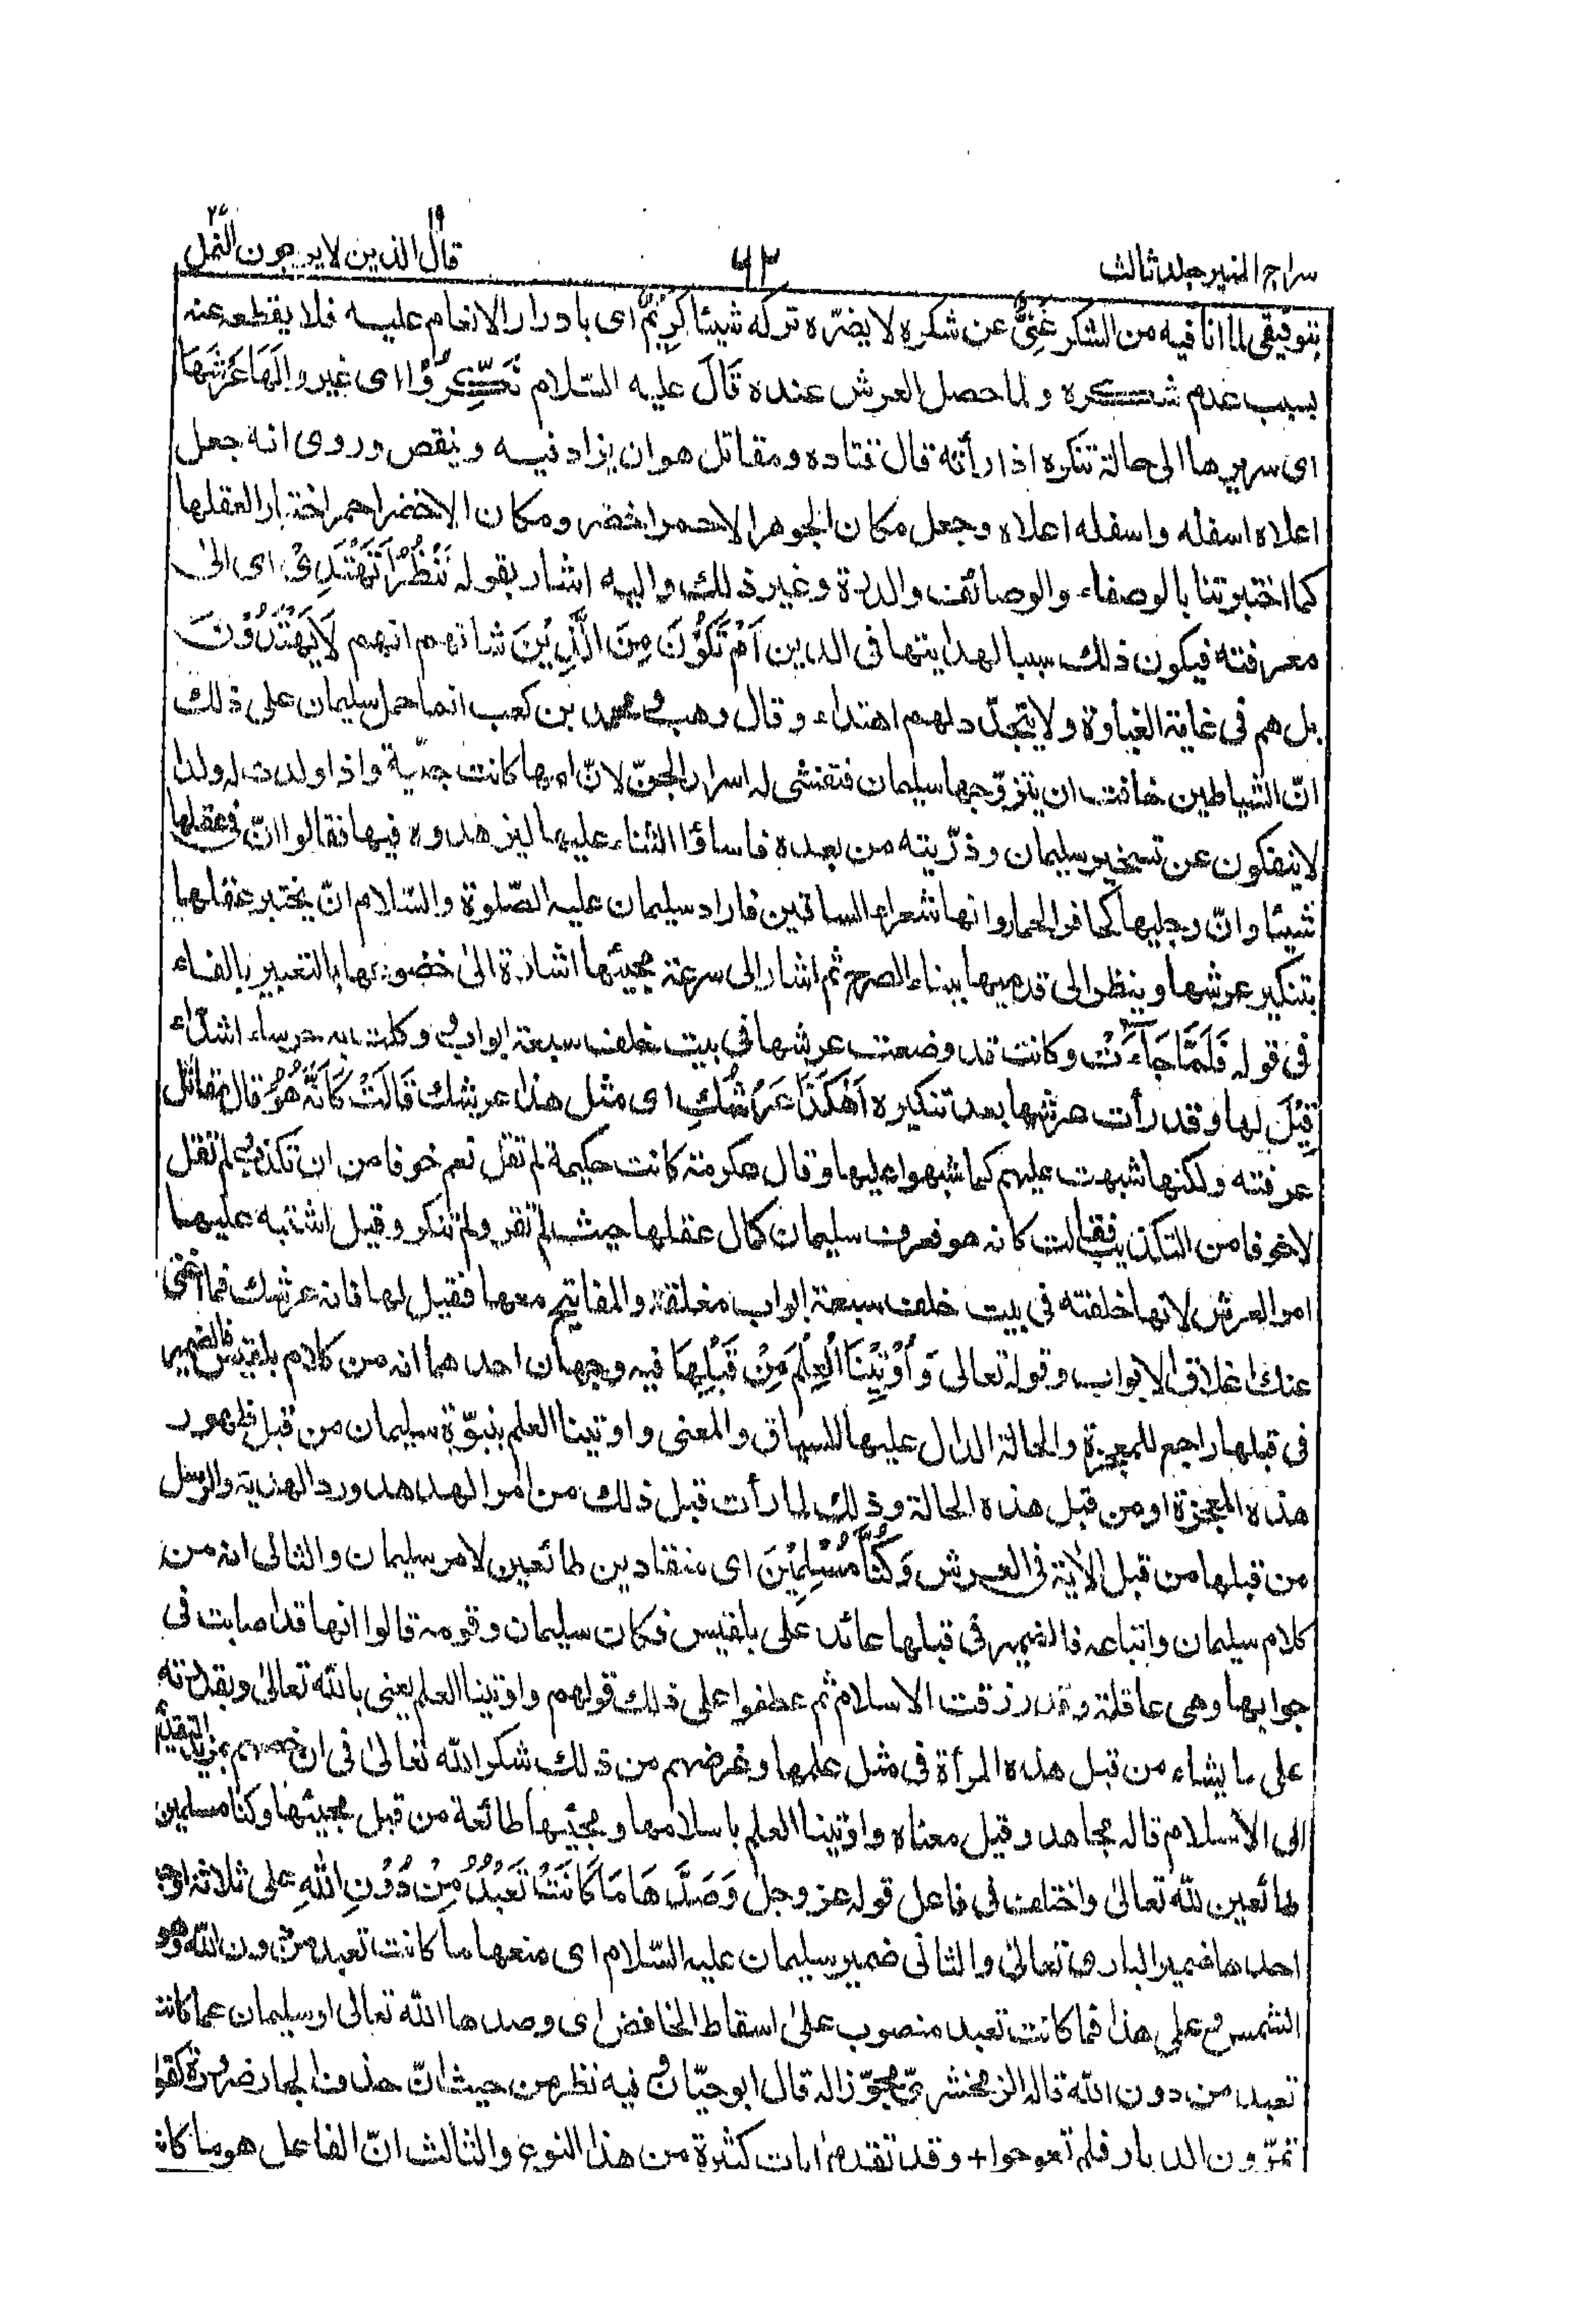 سراج المنير جلد ثالث ٦٣ قال الذين لا يرجون ١٩ النمل ٢٧
بتوفيقى لما انا فيه من الشكر غَنِيٌّ عن شكره لا يضرّه تركه شيئا كَرِيْمٌ اى بادرار الانعام عليه فلا يقطعه عنه
بسبب عدم شكره ولما حصل العرش عنده قَالَ عليه السّلام نَكِّرُوْا اى غيروا لَهَا عَرْشَهَا
اى سريرها الى حالة تنكره اذا رأته قال قتاده ومقاتل هو ان يزاد فيه وينقص وروى انه جعل
اعلاه اسفله واسفله اعلاه وجعل مكان الجوهر الاحمر اخضر ومكان الاخضر احمر اختبارا لعقلها
كما اختبرتنا بالوصفاء والوصائف والدرة وغير ذلك واليه اشار بقوله نَنْظُرْ اَتَهْتَدِىْ اى الى
معرفته فيكون ذلك سببا لهدايتها فى الدين اَمْ تَكُوْنَ مِنَ الَّذِيْنَ شانهم انهم لَا يَهْتَدُوْنَ
بل هم فى غاية الغباوة ولا يتجدّد لهم اهتداء وقال وهب ومحمد بن كعب انما حمل سليمان على ذلك
انّ الشياطين خافت ان يتزوّجها سليمان فتفشى له اسرار الجنّ لانّ امها كانت جنّية واذا ولدت له ولدا
لا ينفكون عن تسخير سليمان وذرّيته من بعده فاساؤا الثناء عليها ليزهدوه فيها فقالوا انّ فى عقلها
شيئا وانّ رجليها كحافر الحمار وانها شعراء الساقين فاراد سليمان عليه الصّلوة والسّلام انّ يختبر عقلها
بتنكير عرشها وينظر الى قدميها ببناء الصرح ثم اشار الى سرعة مجيئها اشارة الى خضوعها بالتعبير بالفاء
فى قوله فَلَمَّا جَآءَتْ وكانت قد وضعت عرشها فى بيت خلف سبعة ابواب ووكلت به حرساء اشدّاء
قِيْلَ لها وقد رأت عرشها بعد تنكيره اَهٰكَذَا عَرْشُكِ اى مثل هذا عرشك قَالَتْ كَاَنَّهُ هُوَ قال مقاتل
عرفته ولكنها شبهت عليهم كما شبهوا عليها وقال عكرمة كانت حكيمة لم تقل نعم خوفا من ان تكذب ولم تقل
لا خوفا من التكذيب فقالت كانه هو فعرف سليمان كمال عقلها حيث لم تقر ولم تنكر وقيل اشتبه عليها
امر العرش لانها خلفته فى بيت خلف سبعة ابواب مغلقة والمفاتيح معها فقيل لها فانه عرشك فما اغنى
عنك اغلاق الابواب وقوله تعالى وَاُوْتِيْنَا الْعِلْمَ مِنْ قَبْلِهَا فيه وجهان احدهما انه من كلام بلقيس فالضمير
فى قبلها راجع للمعجزة والحالة الدال عليها السياق والمعنى واوتينا العلم بنبوّة سليمان من قبل ظهور
هذه المعجزة او من قبل هذه الحالة وذلك لما رأت قبل ذلك من امر الهدهد ورد الهدية والرسل
من قبلها من قبل الآية فى العرش وَكُنَّا مُسْلِمِيْنَ اى منقادين طائعين لامر سليمان والثانى انه من
كلام سليمان واتباعه فالضمير فى قبلها عائد على بلقيس فكان سليمان وقومه قالوا انها قد اصابت فى
جوابها وهى عاقلة وقد رزقت الاسلام ثم عطفوا على ذلك قولهم واوتينا العلم يعنى بالله تعالى وبقدرته
على ما يشاء من قبل هذه المرأة فى مثل علمها وغرضهم من ذلك شكر الله تعالى فى ان خصهم بمزيد التقديم
الى الاسلام قاله مجاهد وقيل معناه واوتينا العلم باسلامها ومجيئها طائعة من قبل مجيئها وكنا مسلمين
طائعين لله تعالى واختلف فى فاعل قوله عز وجل وَصَدَّهَا مَا كَانَتْ تَعْبُدُ مِنْ دُوْنِ اللّٰهِ على ثلاثة اوجه
احدها ضمير البارى تعالى والثانى ضمير سليمان عليه السّلام اى منعها ما كانت تعبد من دون الله وهو
الشمس وعلى هذا فما كانت تعبد منصوب على اسقاط الخافض اى وصدها الله تعالى او سليمان عما كانت
تعبد من دون الله قاله الزمخشرى مجوّزا له قال ابو حيّان وفيه نظر من حيث انّ حذف الجار ضرورة كقوله
تمرّون الديار فلم تعوجوا + وقد تقدم ايات كثيرة من هذا النوع والثالث انّ الفاعل هو ما كانت